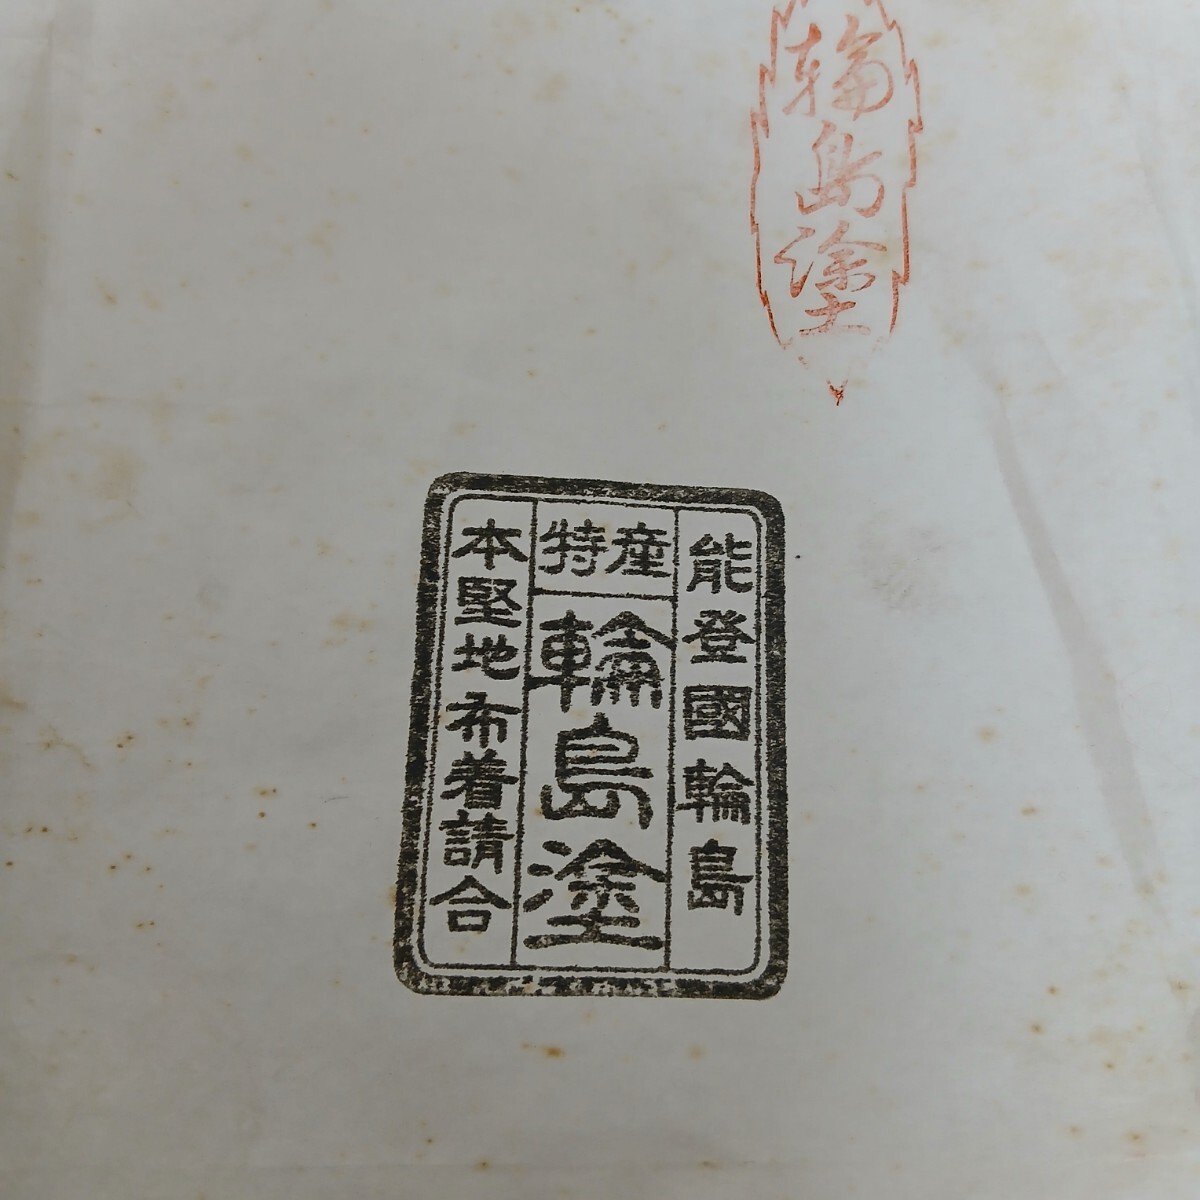 輪島塗
能登國輪島
特産
輪島塗
本堅地布着請合